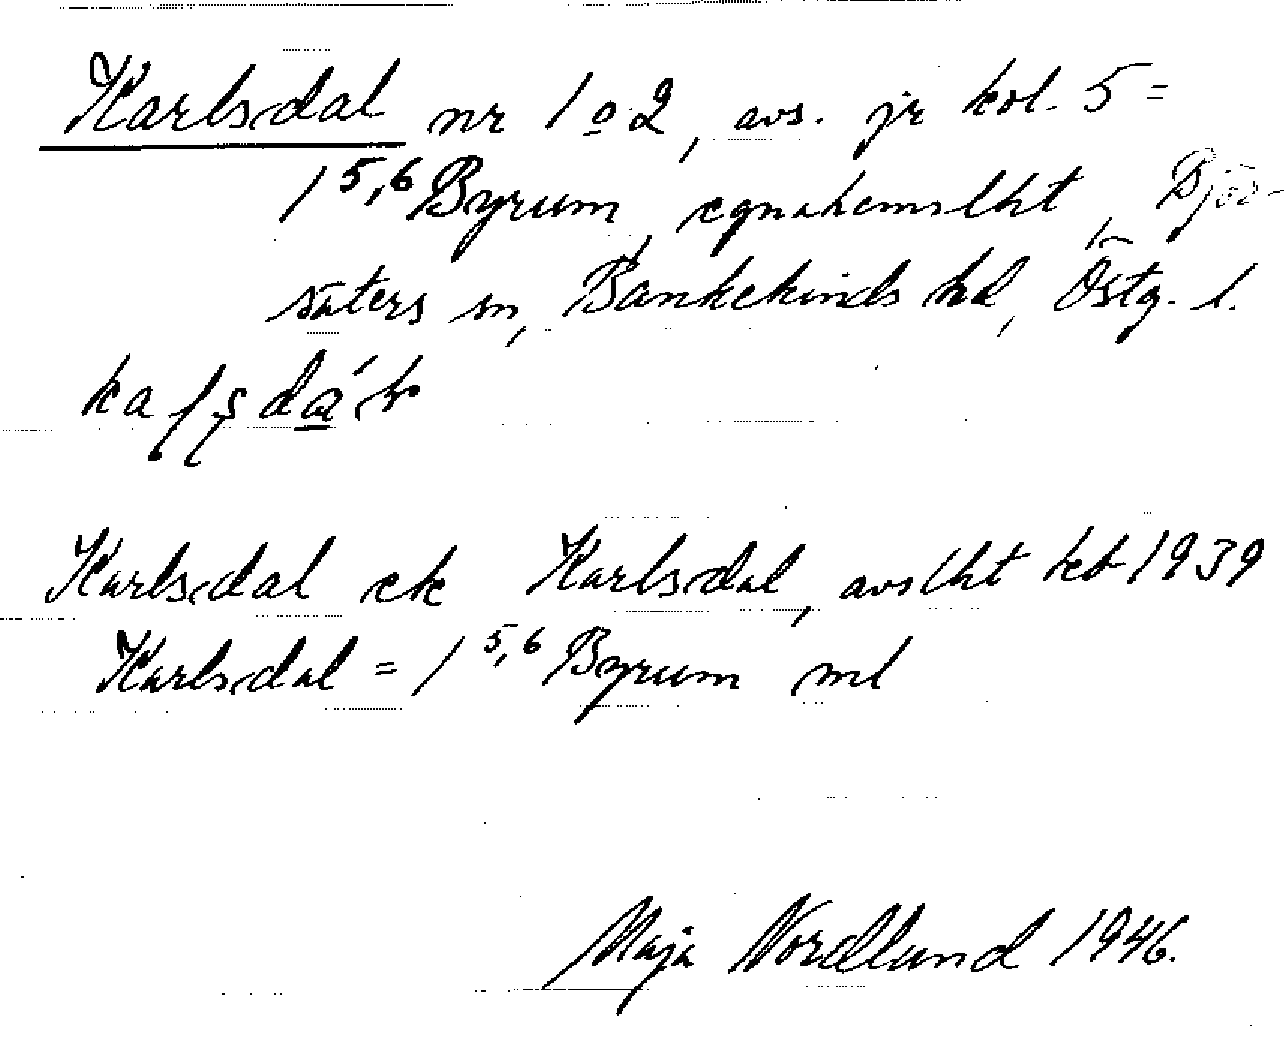 Karlsdal nr 1 o 2, avs. jr kol. 5 =
1 5,6 Byrum, egnahemslht, Björ-
säters sn, Bankekinds hd, Östg. l.
Karlsdal ek Karlsdal, avslht kb 1939
Karlsdal = 1 5,6 Byrum ml
Maja Nordlund 1946.